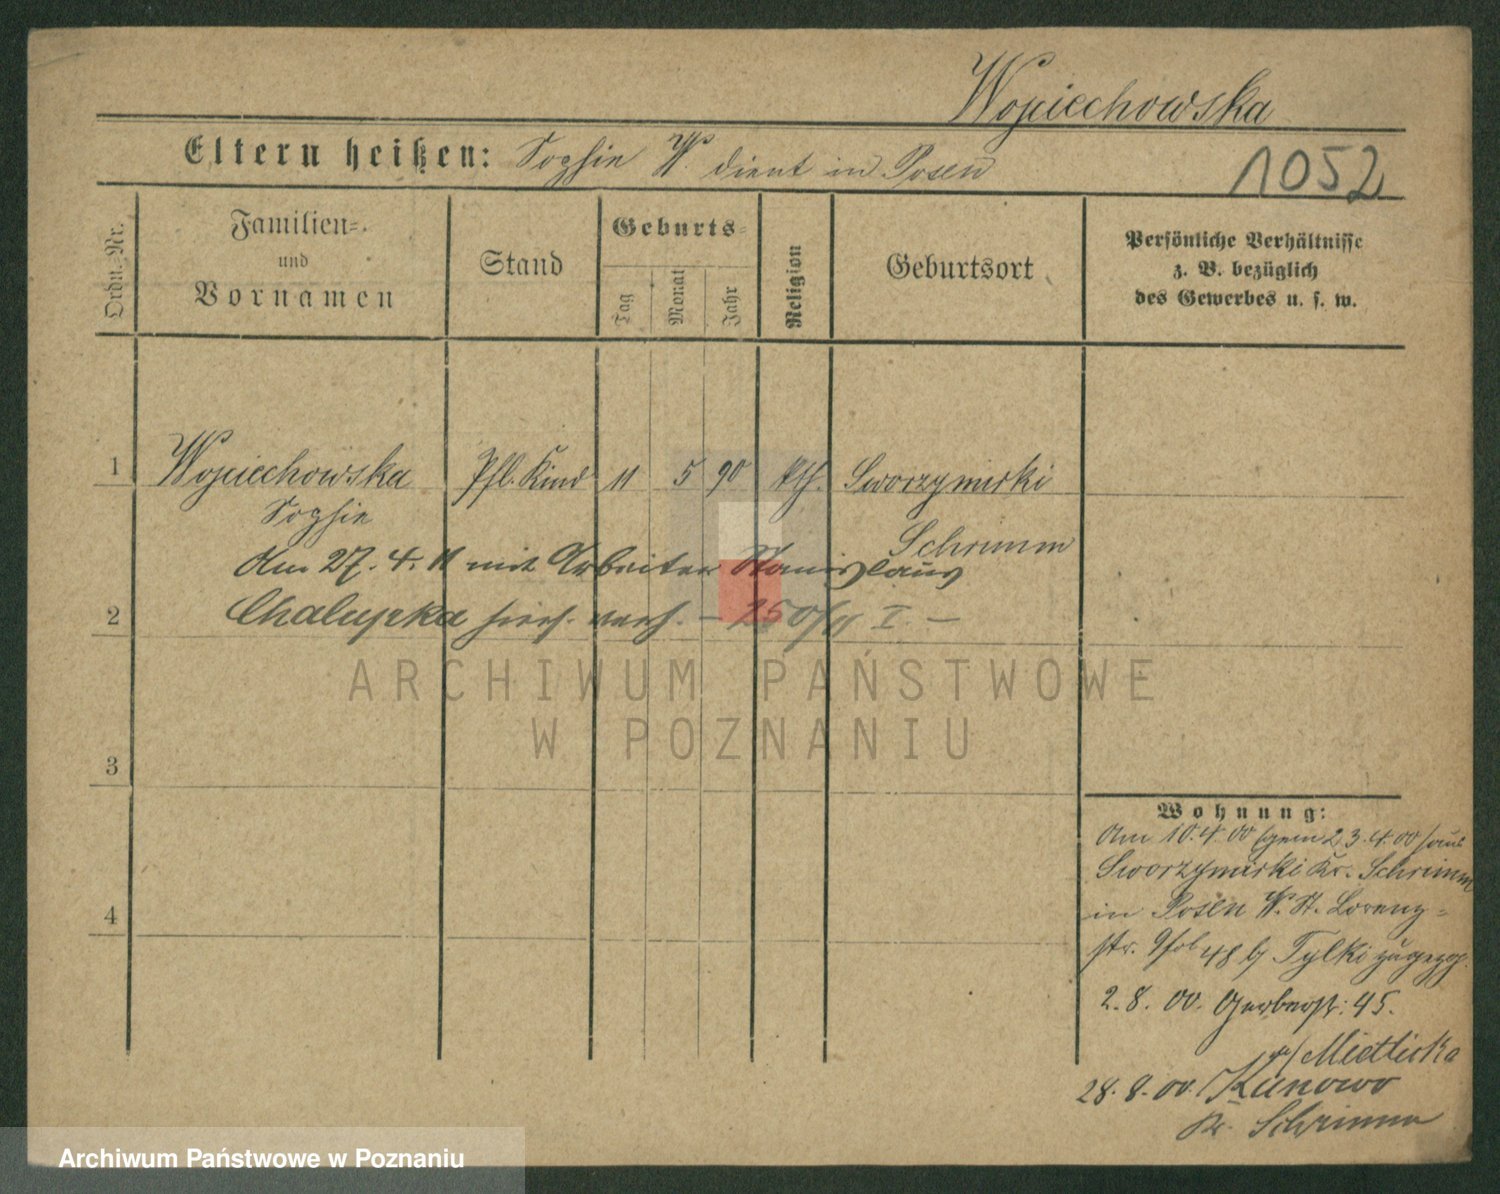 Wojciechowska
Eltern heißen: Sophie W. dient in Posen
1052
Ordn.-Nr.
Familien-
und
Vornamen
Stand
Geburts-
Tag
Monat
Jahr
Religion
Geburtsort
Persönliche Verhältnisse
z. B. bezüglich
des Gewerbes u. s. w.
1 Wojciechowska Pfl. Kind 11 5 90 kth. Sworzymirki
Sophie
Schrimm
Am 27. 4. 11 mit Arbeiter Stanislaus
2 Chalupka hies. verh. – 250/11 I. –
ARCHIWUM PAŃSTWOWE
W POZNANIU
3
4
Wohnung:
Am 10.4.00 23.4.00 aus
Sworzymirki Kr. Schrimm
in Posen W. St. Lorenz-
str. 48 b/ Tylki zugezog.
2. 8. 00. Gerberstr. 45.
b/ Mietlicka
28. 8. 00. Kunowo
Kr. Schrimm
Archiwum Państwowe w Poznaniu